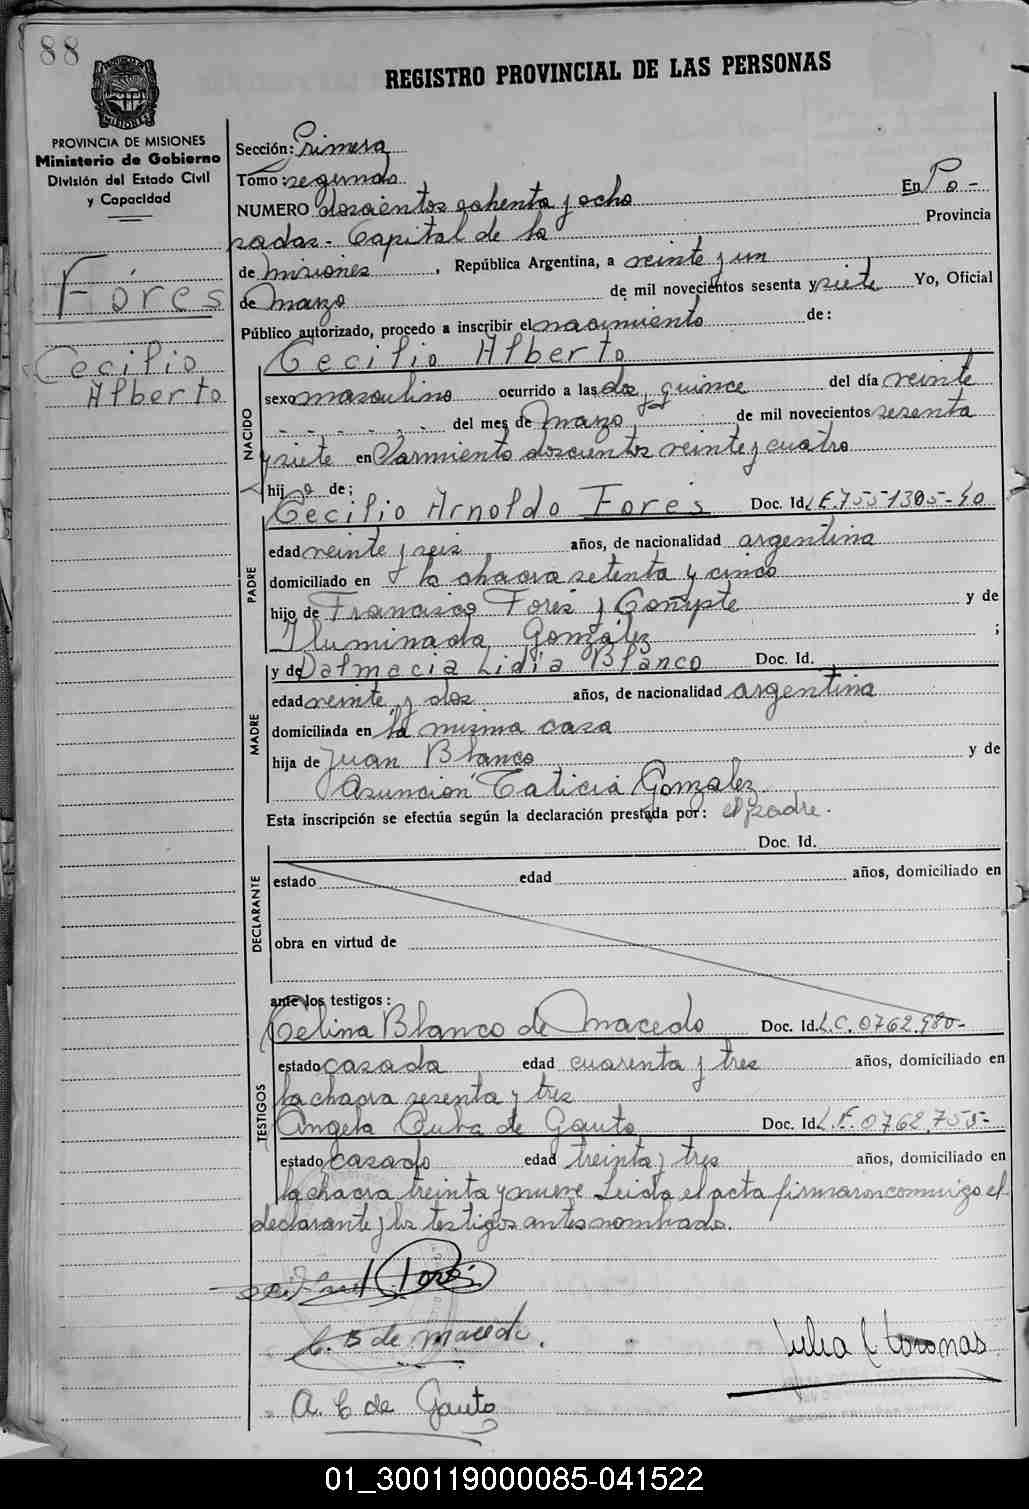 88
REGISTRO PROVINCIAL DE LAS PERSONAS
MISIONES
PROVINCIA DE MISIONES
Ministerio de Gobierno
División del Estado Civil
y Capacidad
Fóres
Cecilio
Alberto
Sección: Primera
Tomo: segundo
NUMERO doscientos ochenta y ocho En Po-
sadas - Capital de la Provincia
de Misiones, República Argentina, a veinte y un
de Marzo de mil novecientos sesenta y siete Yo, Oficial
Público autorizado, procedo a inscribir el nacimiento de:
Cecilio Alberto
NACIDO
sexo masculino ocurrido a las dos y quince del día veinte
- - - - - - del mes de Marzo de mil novecientos sesenta
y siete en Sarmiento doscientos veinte y cuatro
hijo de:
Cecilio Arnoldo Fores Doc. Id. L.E. 7551305-40
PADRE
edad veinte y seis años, de nacionalidad argentina
domiciliado en la chacra setenta y cinco
hijo de Francisco Fores y de
Iluminada González ;
y de Dalmacia Lidia Blanco Doc. Id.
MADRE
edad veinte y dos años, de nacionalidad argentina
domiciliada en la misma casa
hija de Juan Blanco y de
Asunción Gonzalez
Esta inscripción se efectúa según la declaración prestada por: el padre.
Doc. Id.
DECLARANTE
estado edad años, domiciliado en
obra en virtud de
ante los testigos:
Celina Blanco de Macedo Doc. Id. L.C. 0762.980-
TESTIGOS
estado casada edad cuarenta y tres años, domiciliado en
la chacra sesenta y tres
Angela de Gauto Doc. Id. 0762.755-
estado casado edad treinta y tres años, domiciliado en
la chacra treinta y nueve Leida el acta firmaron conmigo el
declarante y los testigos antes nombrado.
Fores
C. B de Macedo.
Julia
A. C de Gauto
01_300119000085-041522